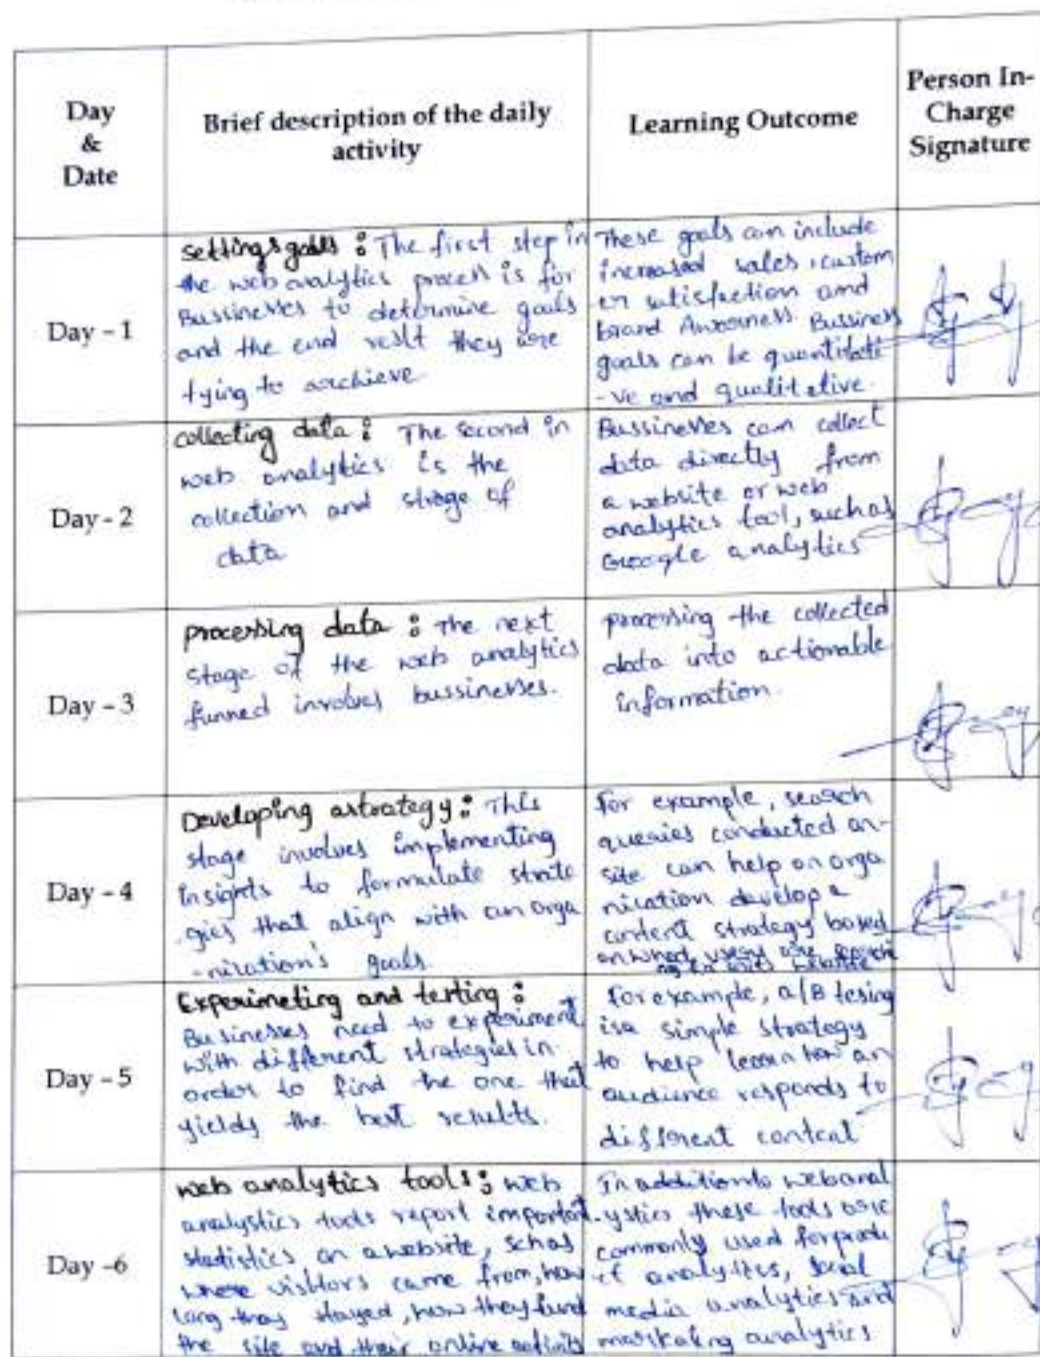 Day
&
Date
Brief description of the daily
activity
Learning Outcome
Person In-
Charge
Signature
Day - 1
Settings goals : The first step in
the web analytics process is for
Bussinesses to determine goals
and the end reslt they are
tying to archieve
These goals can include
increased sales, custom
er satisfaction and
brand Awareness. Bussiness
goals can be quantitati
-ve and qualitative.
Day - 2
collecting data : The second in
web analytics is the
collection and strage of
data
Bussinesses can collect
data directly from
a website or web
analytics tool, such as
Google analytics
Day - 3
processing data : The next
stage of the web analytics
funned involves bussinesses.
processing the collected
data into actionable
information.
Day - 4
Developing astrategy : This
stage involves implementing
Insights to formulate strate
gies that align with an orga
-nization's goals.
For example, search
queries conducted on-
site can help an orga
nization develop a
content strategy based
on what users are
website
Day - 5
Experimeting and testing :
Businesses need to experiment
with different strategies in
order to find the one that
yields the best results.
For example, a/B tesing
is a simple strategy
to help learn how an
audience responds to
different content
Day -6
web analytics tools : web
analystics tools report important
statistics on a website, schas
where visitors came from, how
long they stayed, how they fund
the site and their online activity
In addition to web anal
-ystics these tools are
commonly used for produ
ct analytics, social
media analytics and
marketing analytics